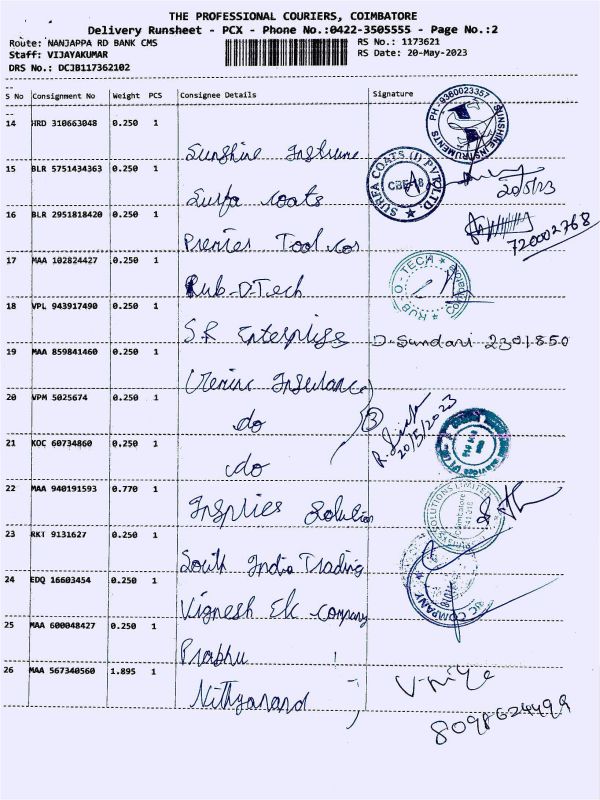 THE PROFESSIONAL COURIERS, COIMBATORE
Delivery Runsheet - PCX - Phone No.:0422-3505555 - Page No.:2
Route: NANJAPPA RD BANK CMS RS No.: 1173621
Staff: VIJAYAKUMAR RS Date: 20-May-2023
DRS No.: DCJB117362102
S No Consignment No Weight PCS Consignee Details Signature
14 HRD 310663048 0.250 1
Sunshine Instrume
PH - 9360023357 SUNSHINE INSTRUMENTS
15 BLR 5751434363 0.250 1
Surfa coats
SURFA COATS (I) PVT LTD. CBE-18
20/5/23
16 BLR 2951818420 0.250 1
Premier Tool cos
720002768
17 MAA 102824427 0.250 1
Rub-O-Tech
RUB - O - TECH
18 VPL 943917490 0.250 1
S.R Enterprises
D. Sundari 2301850
19 MAA 859841460 0.250 1
Insurance
20 VPM 5025674 0.250 1
do
3
20/5/2023
21 KOC 60734860 0.250 1
do
22 MAA 940191593 0.770 1
Inspries Solution
SOLUTIONS LIMITED Coimbatore 641 018
23 RKT 9131627 0.250 1
South India Trading
24 EDQ 16603454 0.250 1
Vignesh Elc company
COMPANY
25 MAA 600048427 0.250 1
Prabhu
26 MAA 567340560 1.895 1
Nithyanand
8098624499